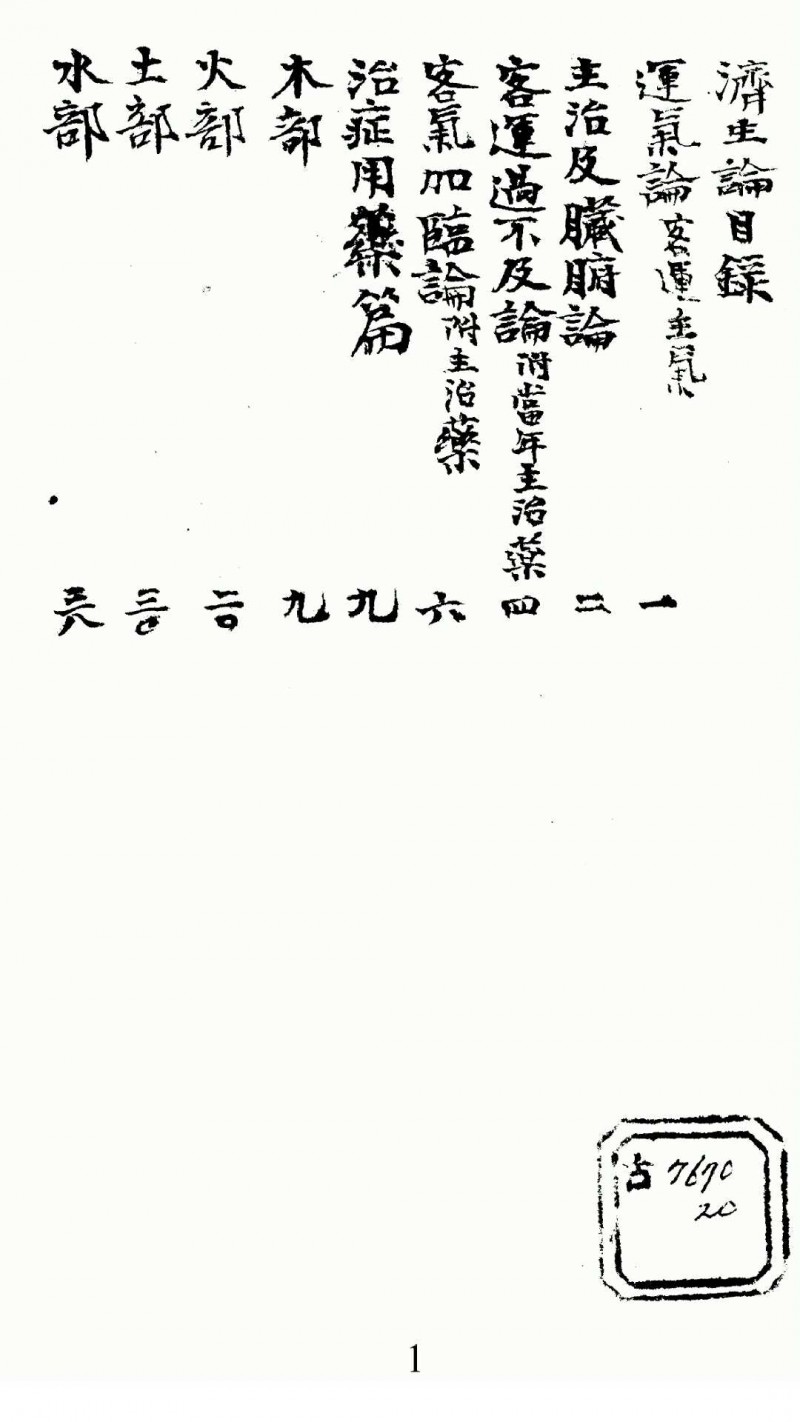 濟生論目錄
運氣論 客運主氣 一
主治及臟腑論 二
客運過不及論 附當年主治藥 四
客氣加臨論 附主治藥 六
治症用藥篇 九
木部 九
火部 二〇
土部 三〇
水部 三八
古 7670
20
1